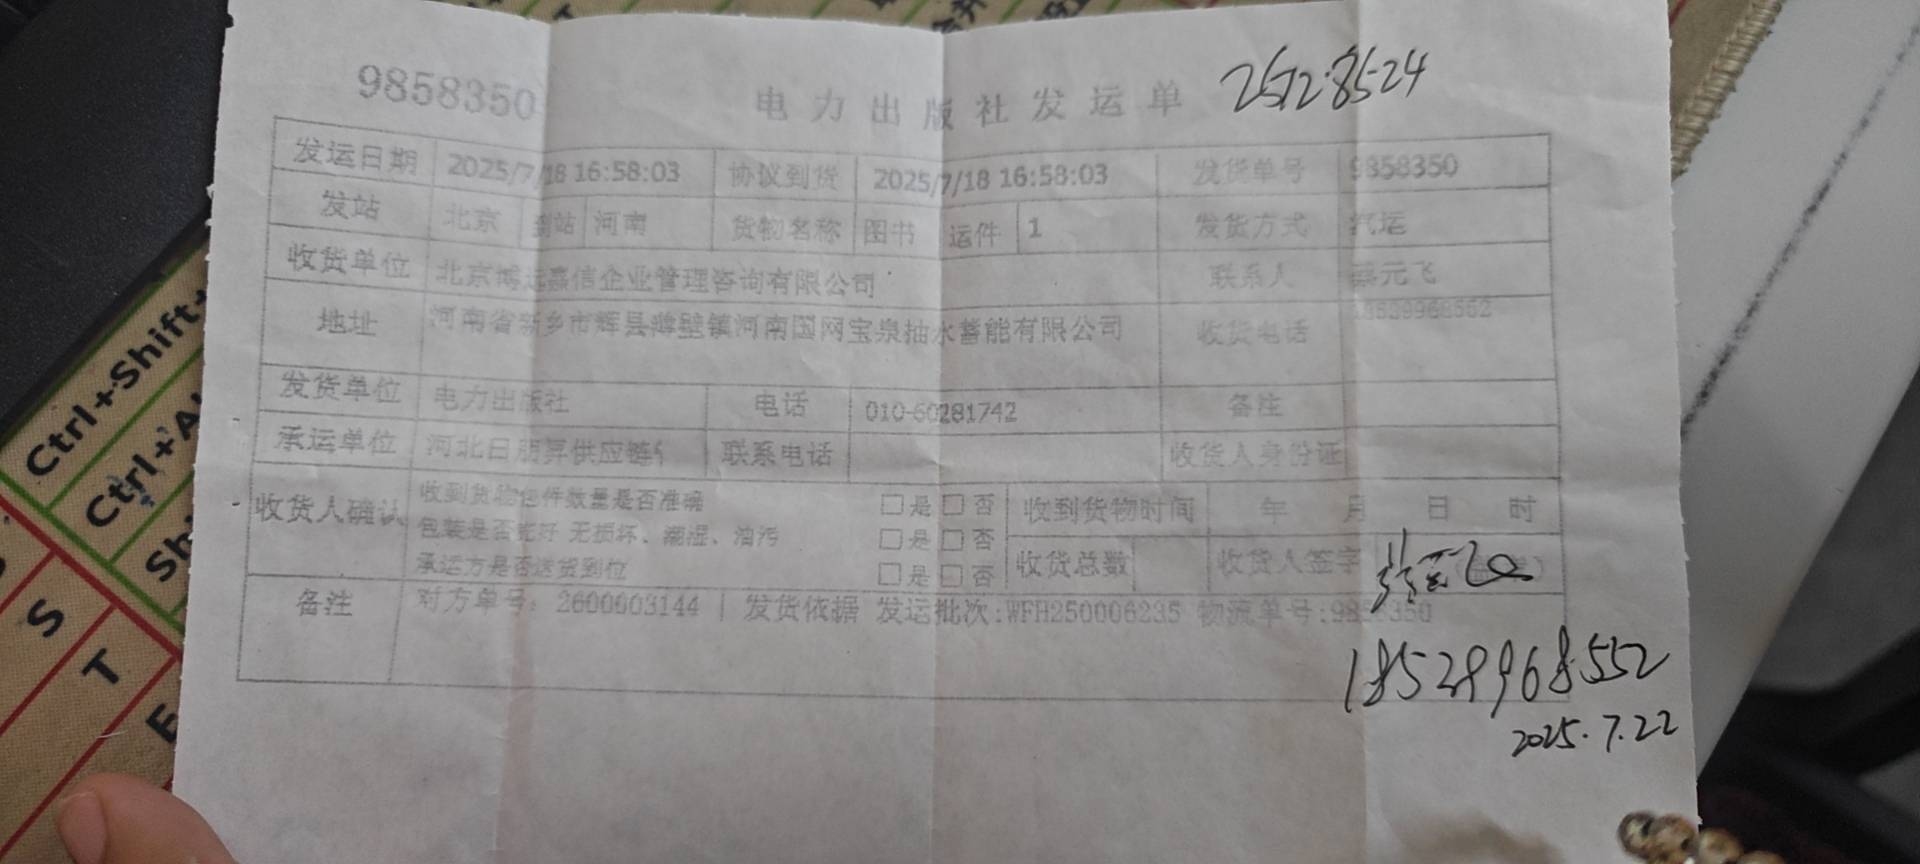 9858350 电力出版社发运单 25128524
发运日期 2025/7/18 16:58:03 协议到货 2025/7/18 16:58:03 发货单号 9858350
发站 北京 到站 河南 货物名称 图书 运件 1 发货方式 汽运
收货单位 北京博远嘉信企业管理咨询有限公司 联系人 元飞
地址 河南省新乡市辉县薄壁镇河南国网宝泉抽水蓄能有限公司 收货电话
发货单位 电力出版社 电话 010-60281742 备注
承运单位 河北日朋昇供应链 联系电话 收货人身份证
收货人确认 收到货物包件数量是否准确 □是□否 收到货物时间 年 月 日 时
包装是否完好 无损坏、潮湿、油污 □是□否
承运方是否送货到位 □是□否 收货总数 收货人签字
备注 对方单号: 2600003144 | 发货依据 发运批次:WFH250006235 物流单号:9858350
18528968552
2025.7.22
Ctrl+Shift+
Ctrl+A
Sh
S
T
E